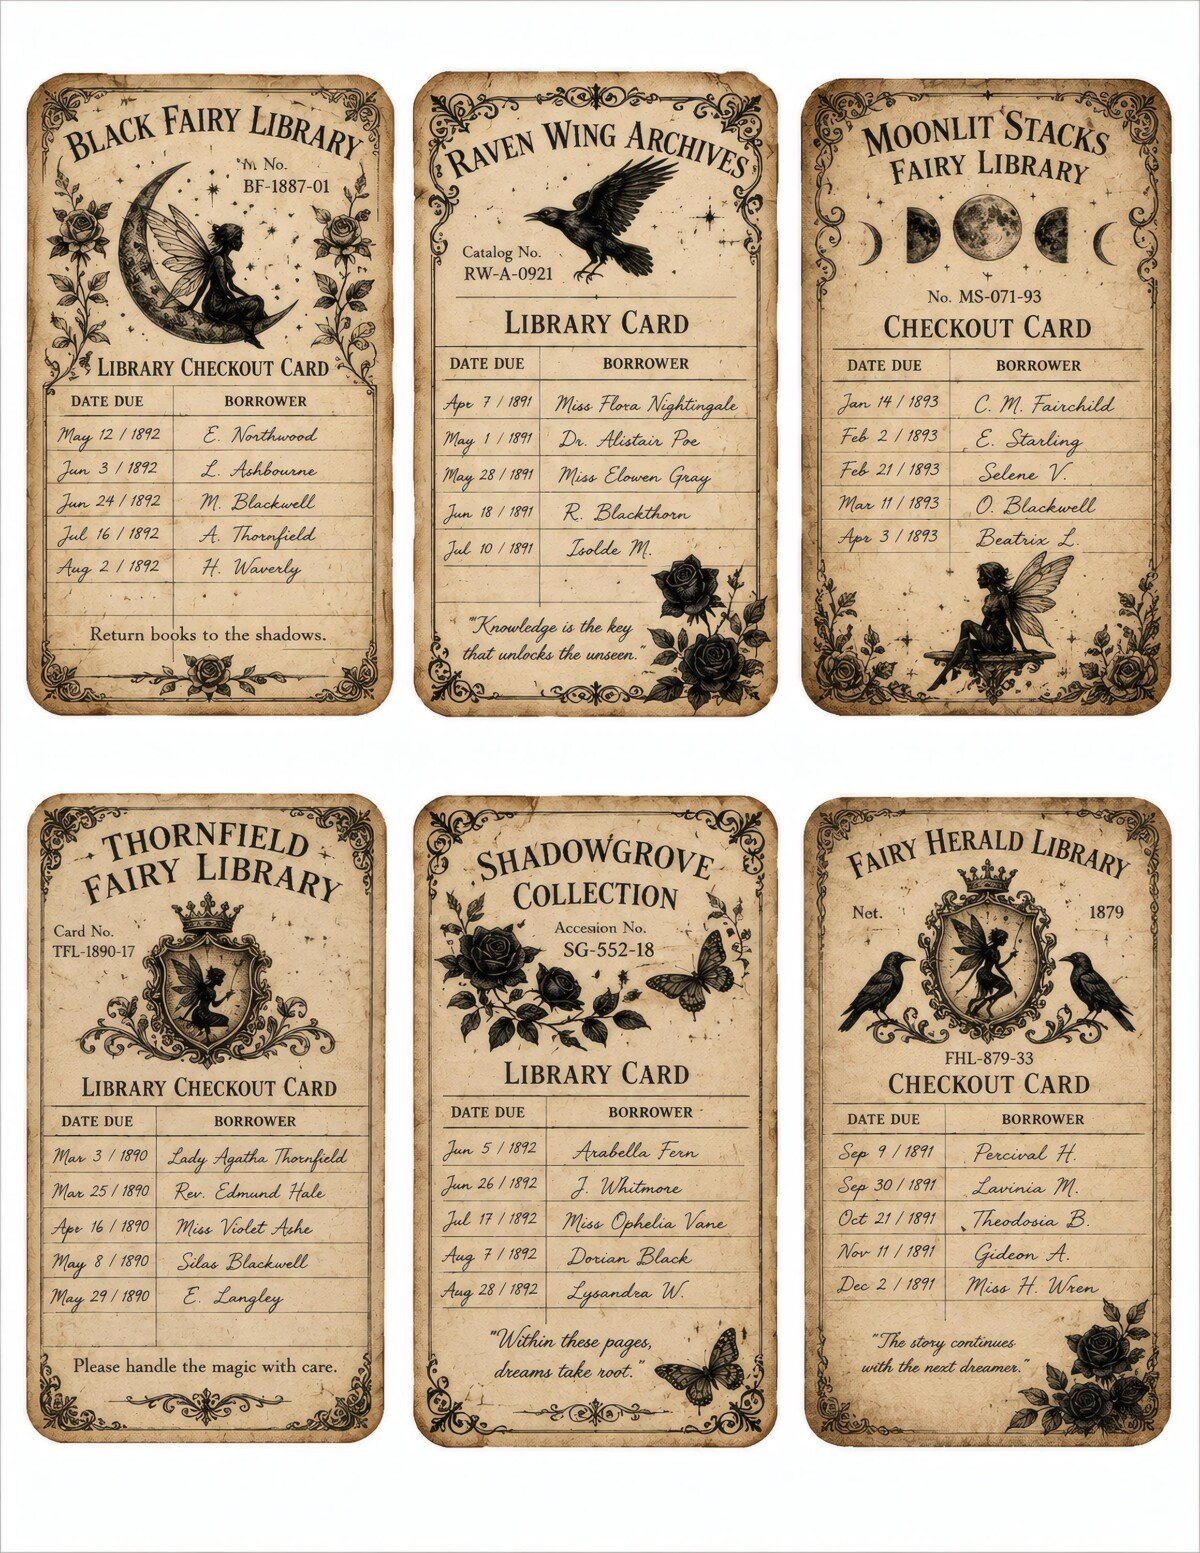 BLACK FAIRY LIBRARY
No.
BF-1887-01
LIBRARY CHECKOUT CARD
DATE DUE BORROWER
May 12 / 1892 E. Northwood
Jun 3 / 1892 L. Ashbourne
Jun 24 / 1892 M. Blackwell
Jul 16 / 1892 A. Thornfield
Aug 2 / 1892 H. Waverly
Return books to the shadows.
RAVEN WING ARCHIVES
Catalog No.
RW-A-0921
LIBRARY CARD
DATE DUE BORROWER
Apr 7 / 1891 Miss Flora Nightingale
May 1 / 1891 Dr. Alistair Poe
May 28 / 1891 Miss Elowen Gray
Jun 18 / 1891 R. Blackthorn
Jul 10 / 1891 Isolde M.
"Knowledge is the key
that unlocks the unseen."
MOONLIT STACKS
FAIRY LIBRARY
No. MS-071-93
CHECKOUT CARD
DATE DUE BORROWER
Jan 14 / 1893 C. M. Fairchild
Feb 2 / 1893 E. Starling
Feb 21 / 1893 Selene V.
Mar 11 / 1893 O. Blackwell
Apr 3 / 1893 Beatrix L.
THORNFIELD
FAIRY LIBRARY
Card No.
TFL-1890-17
LIBRARY CHECKOUT CARD
DATE DUE BORROWER
Mar 3 / 1890 Lady Agatha Thornfield
Mar 25 / 1890 Rev. Edmund Hale
Apr 16 / 1890 Miss Violet Ashe
May 8 / 1890 Silas Blackwell
May 29 / 1890 E. Langley
Please handle the magic with care.
SHADOWGROVE
COLLECTION
Accesion No.
SG-552-18
LIBRARY CARD
DATE DUE BORROWER
Jun 5 / 1892 Arabella Fern
Jun 26 / 1892 J. Whitmore
Jul 17 / 1892 Miss Ophelia Vane
Aug 7 / 1892 Dorian Black
Aug 28 / 1892 Lysandra W.
"Within these pages,
dreams take root."
FAIRY HERALD LIBRARY
Not. 1879
FHL-879-33
CHECKOUT CARD
DATE DUE BORROWER
Sep 9 / 1891 Percival H.
Sep 30 / 1891 Lavinia M.
Oct 21 / 1891 Theodosia B.
Nov 11 / 1891 Gideon A.
Dec 2 / 1891 Miss H. Wren
"The story continues
with the next dreamer."